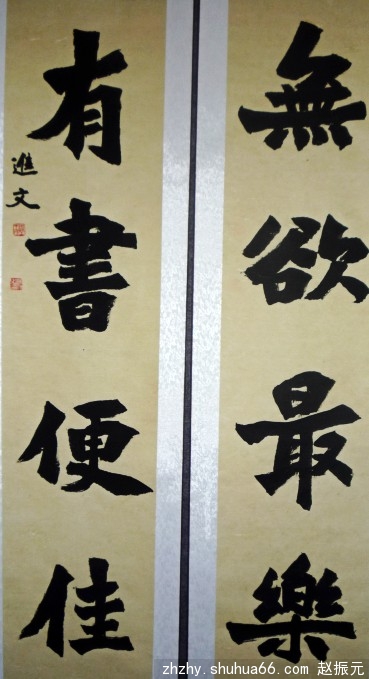 無欲最樂
有書便佳
進文
zhzhy.shuhua66.com 赵振元